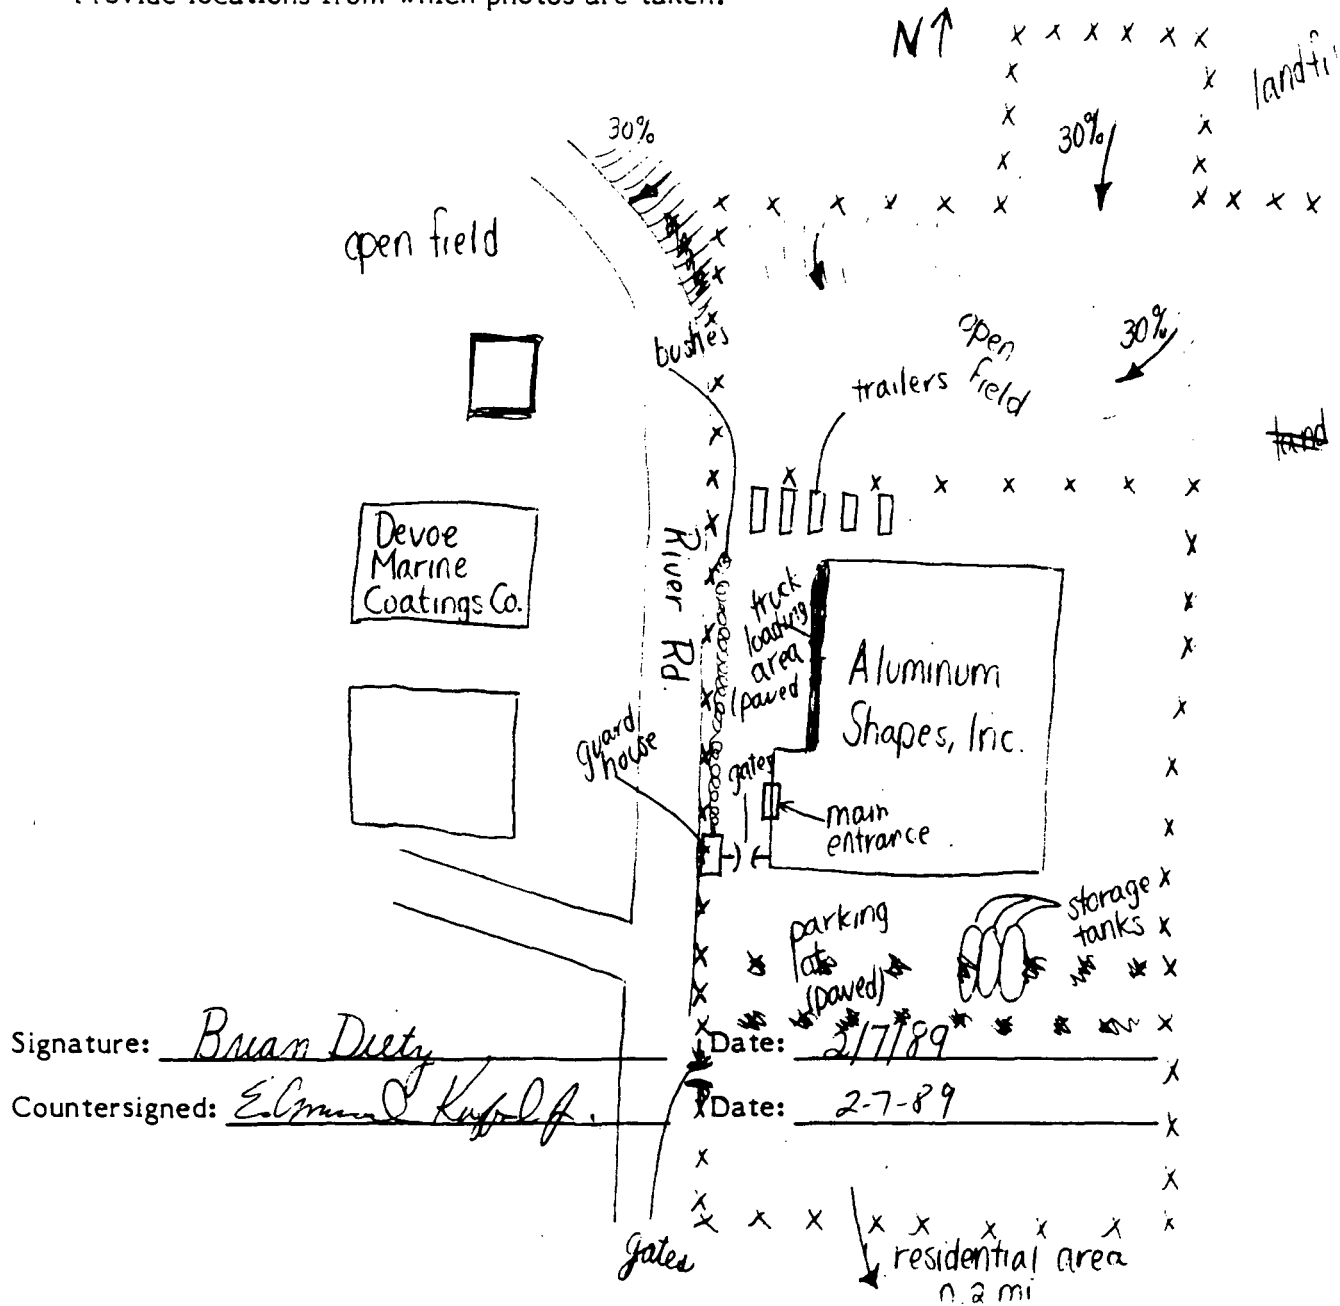 Provide locations from which photos are taken.
N
landfi
30%
30%
open field
bushes
open
field
30%
trailers
Devoe
Marine
Coatings Co.
River Rd.
truck
loading
area
(paved
Aluminum
Shapes, Inc.
guard
house
gates
main
entrance
storage
tanks
parking
lot
(paved)
Signature: Brian Dietz
Date: 2/7/89
Countersigned:
Date: 2-7-89
gates
residential area
0.2 mi